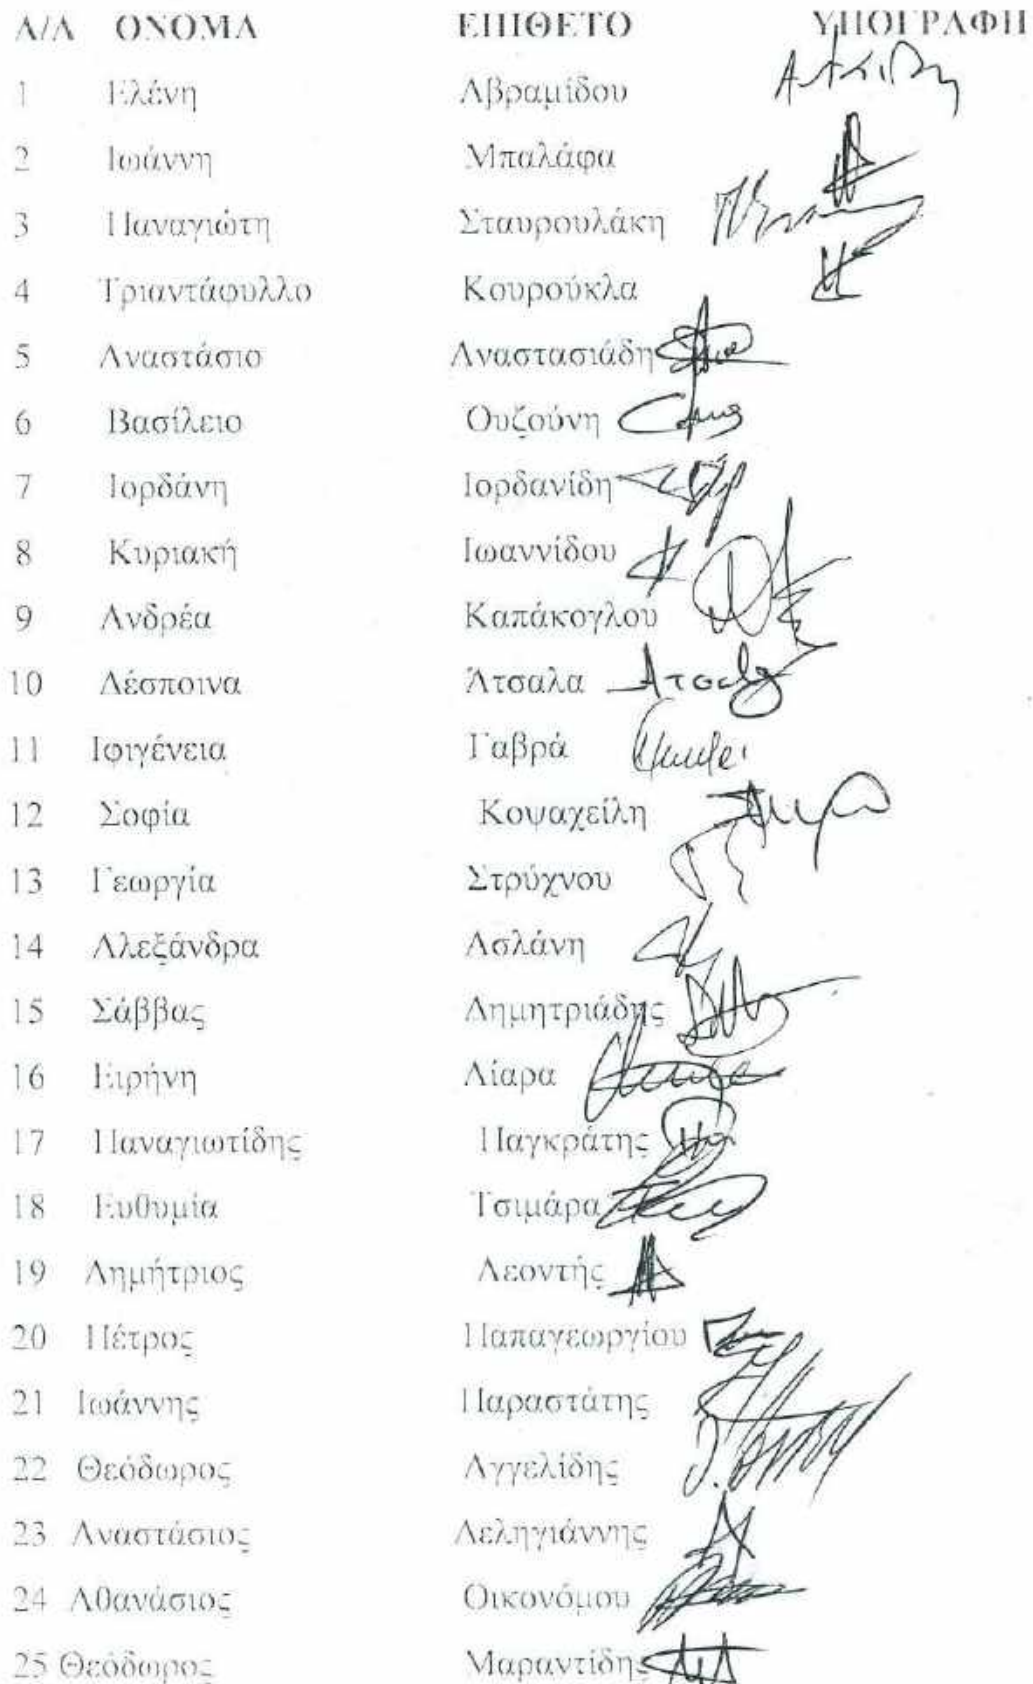 Α/Α ΟΝΟΜΑ ΕΠΙΘΕΤΟ ΥΠΟΓΡΑΦΗ
1 Ελένη Αβραμίδου
2 Ιωάννη Μπαλάφα
3 Παναγιώτη Σταυρουλάκη
4 Τριαντάφυλλο Κουρούκλα
5 Αναστάσιο Αναστασιάδη
6 Βασίλειο Ουζούνη
7 Ιορδάνη Ιορδανίδη
8 Κυριακή Ιωαννίδου
9 Ανδρέα Καπάκογλου
10 Δέσποινα Άτσαλα
11 Ιφιγένεια Γαβρά
12 Σοφία Κοψαχείλη
13 Γεωργία Στρύχνου
14 Αλεξάνδρα Ασλάνη
15 Σάββας Δημητριάδης
16 Ειρήνη Λίαρα
17 Παναγιωτίδης Παγκράτης
18 Ευθυμία Τσιμάρα
19 Δημήτριος Λεοντής
20 Πέτρος Παπαγεωργίου
21 Ιωάννης Παραστάτης
22 Θεόδωρος Αγγελίδης
23 Αναστάσιος Δεληγιάννης
24 Αθανάσιος Οικονόμου
25 Θεόδωρος Μαραντίδης